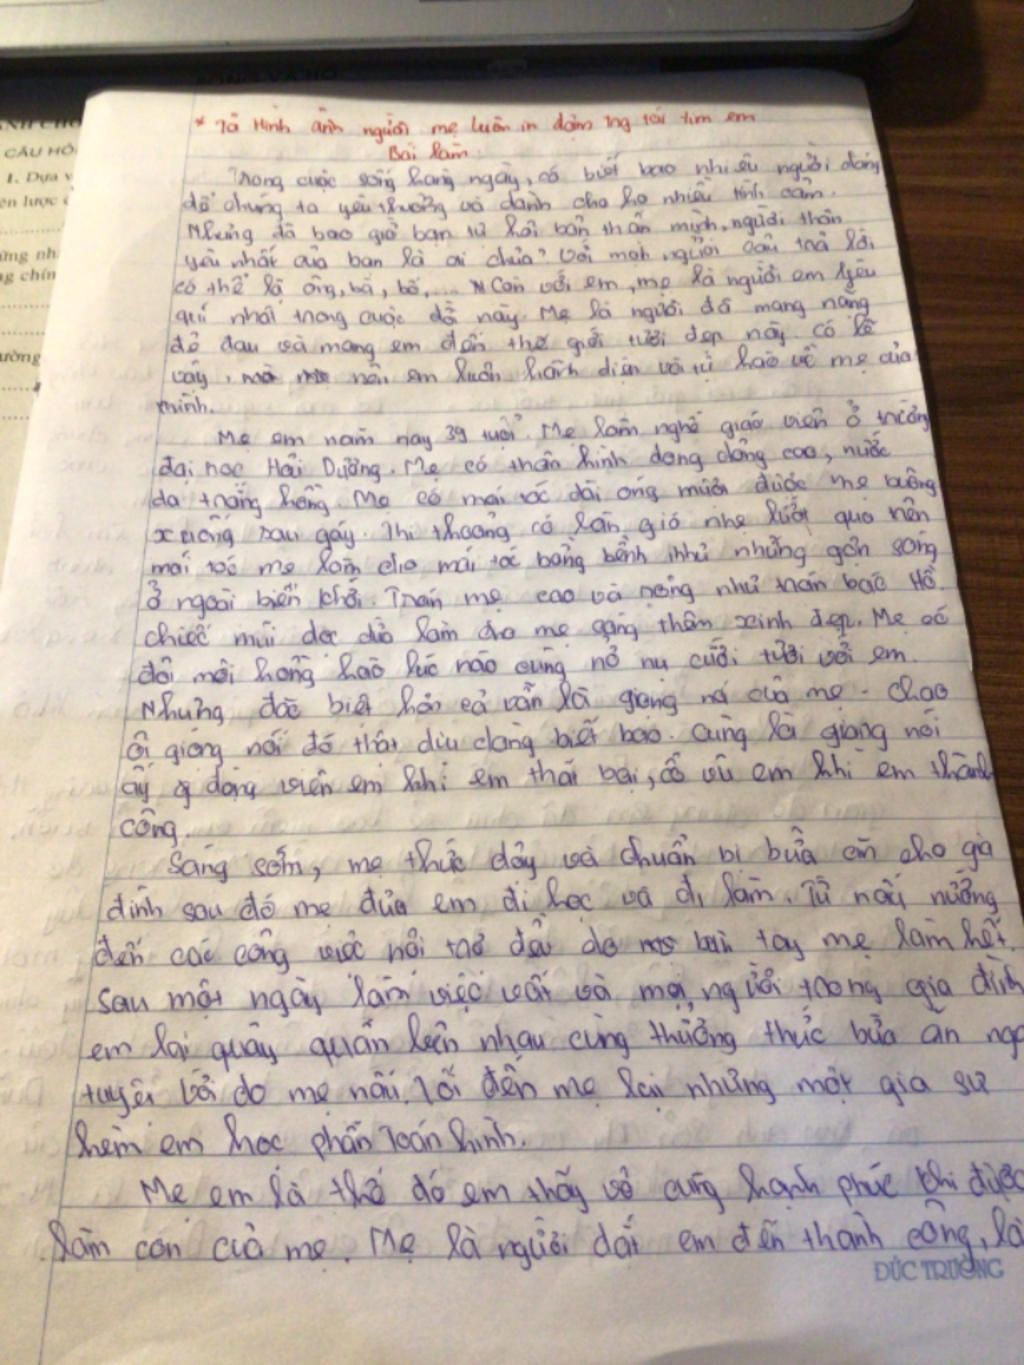 * Tả Hình ảnh người mẹ luôn in đậm trg tái tim em
Bài làm
Trong cuộc sống hàng ngày, có biết bao nhiêu người đáng
để chúng ta yêu thương và dành cho họ nhiều tình cảm.
Nhưng đã bao giờ bạn tử hỏi bản thân mình, người thân
yêu nhất của bạn là ai chưa? Với một người câu trả lời
có thể là ông, bà, bố,... Còn với em, mẹ là người em yêu
quí nhất trong cuộc đời này. Mẹ là người đã mang nặng
đẻ đau và mang em đến thế giới tười đẹp này. Có lẽ
vậy, nên em luôn hãnh diện và tự hào về mẹ của
mình.
Mẹ em năm nay 39 tuổi. Mẹ làm nghề giáo viên ở trường
đại học Hải Dương. Mẹ có thân hình dong dỏng cao, nước
da trắng hồng. Mẹ có mái tóc dài óng mượt được mẹ buông
xuống sau gáy. Thi thoảng có làn gió nhẹ lướt qua nên
mái tóc mẹ làm cho mái tóc bồng bềnh như những gợn sóng
ở ngoài biển khơi. Trán mẹ cao và rộng như trán bác Hồ.
chiếc mũi dọc dừa làm cho mẹ càng thêm xinh đẹp. Mẹ có
đôi môi hồng hào lúc nào cũng nở nụ cười tười với em.
Nhưng đặc biệt hơn cả vẫn là giọng nói của mẹ. Chao
ôi giọng nói đó thật dịu dàng biết bao. Cũng là giọng nói
ấy động viên em khi em thất bại, cổ vũ em khi em thành
công.
Sáng sớm, mẹ thức dậy và chuẩn bị bữa ăn cho gia
đình sau đó mẹ đưa em đi học và đi làm. Từ nấu nướng
đến các công việc nội trợ đều do bàn tay mẹ làm hết.
Sau một ngày làm việc vất vả mọi người trong gia đình
em lại quây quần bên nhau cùng thưởng thức bữa ăn
tuyệt vời do mẹ nấu. Tối đến mẹ lại những một gia sư
kèm em học phần Toán hình.
Mẹ em là thế đó em thấy vô cùng hạnh phúc khi được
làm con của mẹ. Mẹ là người dắt em đến thành công, là
ĐỨC TRƯỜNG
CÂU HỎ
1. Dựa v